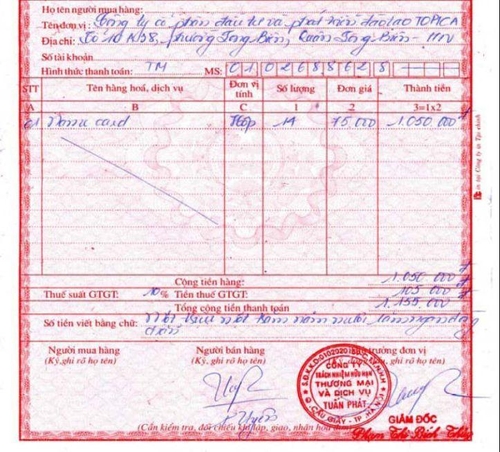 Họ tên người mua hàng:
Tên đơn vị: Công ty cổ phần đầu tư và phát triển đào tạo TOPICA
Địa chỉ: Số 10 K58, phường Long Biên, Quận Long Biên - HN
Số tài khoản
Hình thức thanh toán: TM MS: 0102688628
STT Tên hàng hoá, dịch vụ Đơn vị tính Số lượng Đơn giá Thành tiền
A B C 1 2 3=1x2
01 card Hộp 14 75.000 1.050.000 đ
Cộng tiền hàng: 1.050.000 đ
Thuế suất GTGT: 10% Tiền thuế GTGT: 105.000 đ
Tổng cộng tiền thanh toán 1.155.000 đ
Số tiền viết bằng chữ: Một triệu một trăm năm mươi lăm ngàn đồng
chẵn
Người mua hàng Người bán hàng trưởng đơn vị
(Ký, ghi rõ họ tên) (Ký, ghi rõ họ tên) ghi rõ họ tên)
CÔNG TY
TRÁCH NHIỆM HỮU HẠN
THƯƠNG MẠI
VÀ DỊCH VỤ
TUẤN PHÁT
Q. CẦU GIẤY - TP. HÀ NỘI
GIÁM ĐỐC
Phạm Thị Bích Thủy
(Cần kiểm tra, đối chiếu khi lập, giao, nhận hoá đơn)